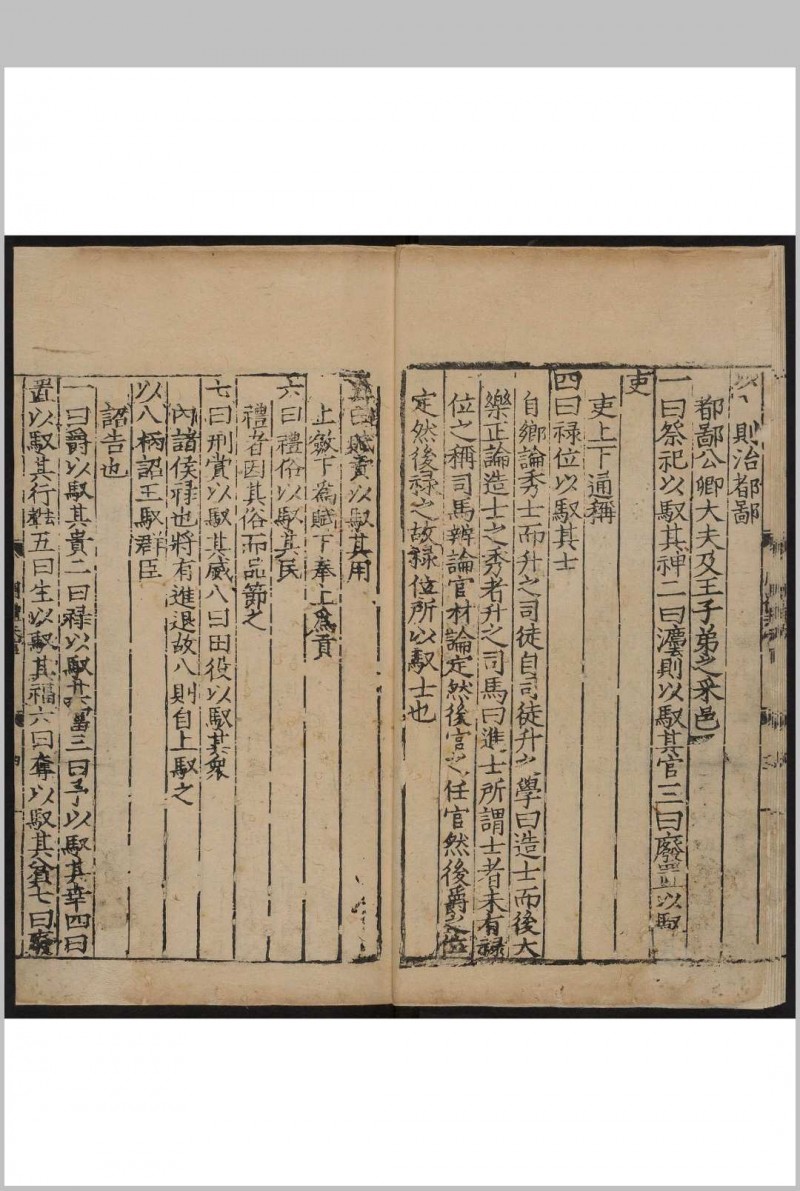 以八則治都鄙
都鄙公卿大夫及王子弟之采邑
一曰祭祀以馭其神二曰灋則以馭其官三曰廢置以馭其
吏
吏上下通稱
四曰禄位以馭其士
自鄉論秀士而升之司徒自司徒升之學曰造士而後大
樂正論造士之秀者升之司馬曰進士所謂士者未有禄
位之稱司馬辨論官材論定然後官之任官然後爵之位
定然後禄之故禄位所以馭士也
五曰賦貢以馭其用
上斂下為賦下奉上為貢
六曰禮俗以馭其民
禮者因其俗而品節之
七曰刑賞以馭其威八曰田役以馭其衆
内諸侯禄也將有進退故八則自上馭之
以八柄詔王馭群臣
詔告也
一曰爵以馭其貴二曰禄以馭其富三曰予以馭其幸四曰
置以馭其行五曰生以馭其福六曰奪以馭其貧七曰廢